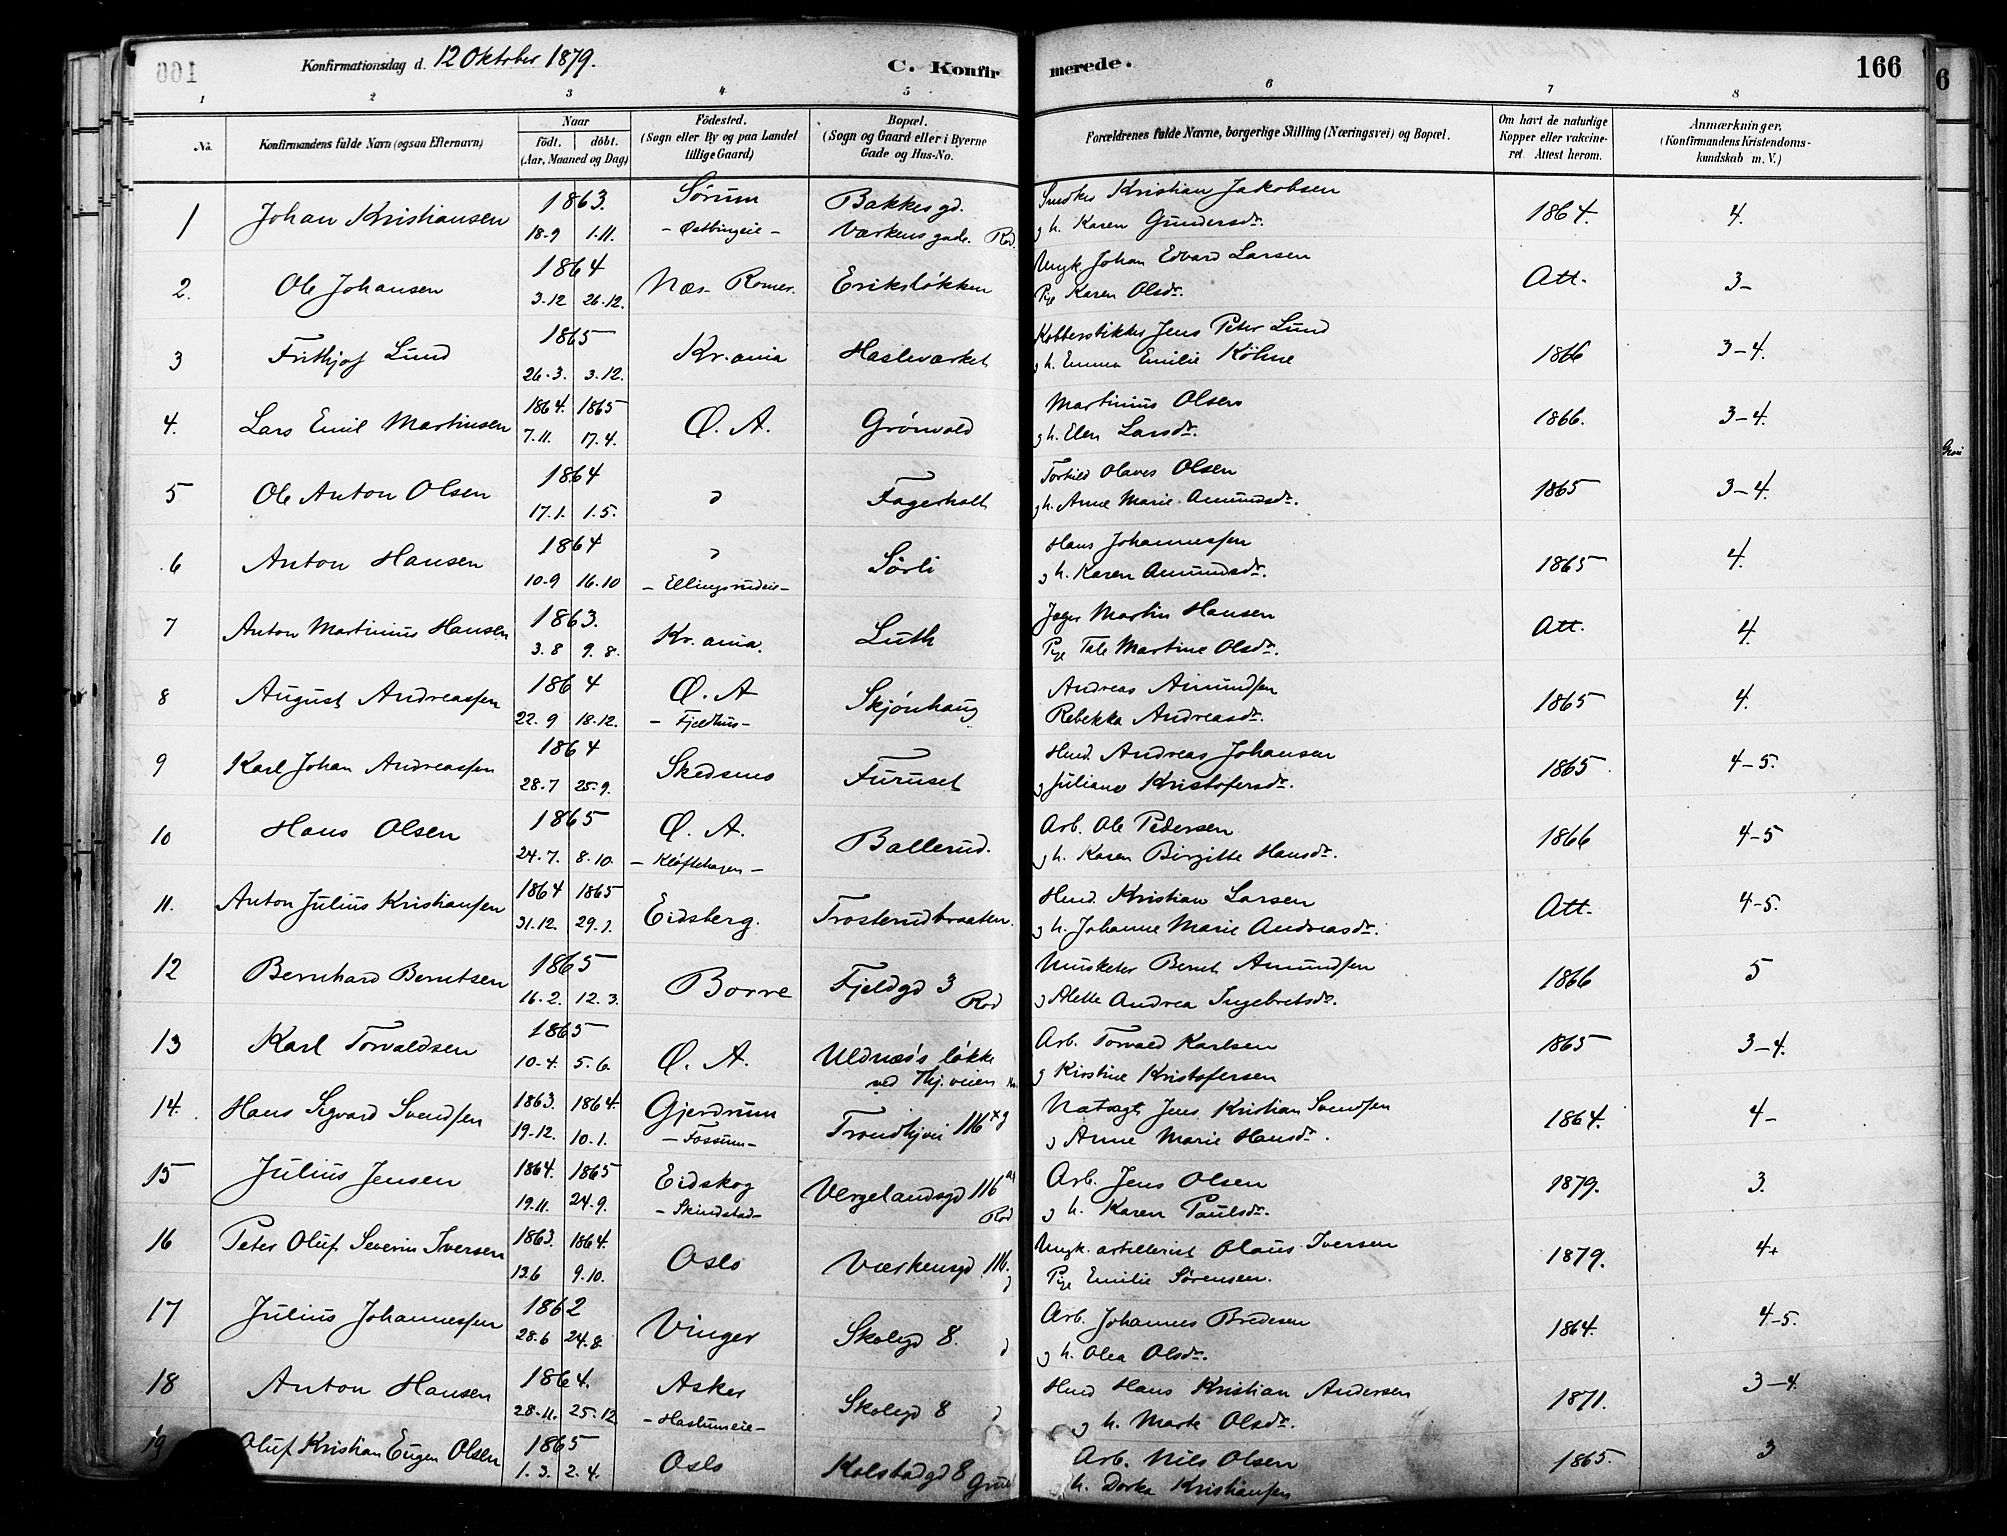 Konfirmationsdag d. 12 Oktober 1879. C. Konfirmerede. 166
1 2 3 4 5 6 7 8
No. Konfirmandens fulde Navn (ogsaa Efternavn) Naar födt. döbt. (Aar, Maaned og Dag) Födested. (Sogn eller By og paa Landet tillige Gaard) Bopæl. (Sogn og Gaard eller i Byerne Gade og Hus-No. Forældrenes fulde Navne, borgerlige Stilling (Næringsvei) og Bopæl. Om havt de naturlige Kopper eller vakcineret. Attest herom. Anmærkninger, (Konfirmandens Kristendomskundskab m. V.)
1 Johan Kristiansen 1863. Sørum Bakkes gd. Kristian Jakobsen 1864. 4.
18-9 1.11. Værkens gade. Rod. g h. Karen Gundersdr.
2. Ole Johansen 1864 Næs- Romer. Eriksløkken Ungk. Johan Edvard Larsen Att. 3-
3.12 26.12. Pge Karen Olsdr.
3 Frithjof Lund 1865 Kr.ania Hasleværket Kobberstikker Jens Peter Lund 1866 3-4.
26-3. 3.12. g h. Emma Emilie Köhne
4. Lars Emil Martinsen 1864. 1865 Ø. A. Grönvold Martinius Olsen 1866. 3-4.
7.11. 17.4. g h. Elen Larsdr.
5 Ole Anton Olsen 1864 " Fagerholt Torkild Olaves Olsen 1865 3-4.
17.1. 1.5. g h. Anne Marie Amundsdr.
6 Anton Hansen 1864 " Sörli Hans Johannessen 1865 4.
10-9 16.10 - Ellingsrudeie - g h. Karen Amundsdr.
7 Anton Martinius Hansen 1863. Kr.ania. Luth Jæger Martin Hansen Att. 4.
3.8 9.8. Pge Tale Martine Olsdr.
8 August Andreassen 1864 Ø. A Skjönhaug Andreas Amundsen 1865 4.
22.9 18.12. - Fjeldhus - Rebekka Andreasdr.
9 Karl Johan Andreassen 1864 Skedsmo Furuset Husd. Andreas Johansen 1865 4-5.
28.7 25.9. g Juliane Kristofersdr.
10 Hans Olsen 1865 Ø. A. Ballerud. Arb. Ole Pedersen 1866 4-5
24.7. 8.10. - Kløftehagen - g h. Karen Birgitte Hansdr.
11. Anton Julius Kristiansen 1864 1865 Eidsberg. Trosterudbraaten. Husd. Kristian Larsen Att. 4-5.
31.12. 29.1. g h. Johanne Marie Andreasdr.
12 Bernhard Berntsen 1865 Borre Fjeldgd 3 Rod Musketer Bernt Amundsen 1866 5
16.2. 12.3. g Alette Andrea Ingebretsdr.
13 Karl Torvaldsen 1865 Ø. A. Uldnæs's løkke Arb. Torvald Karlsen 1865 3-4.
10-4. 5.6. ved Thj.veien g Kirstine Kristofersen
14. Hans Sigvard Svendsen 1863. 1864. Gjerdrum Trondhjvei 116 Natvagt Jens Kristian Svendsen 1864. 4-
19-12. 10.1. - Fossum - g Anne Marie Hansdr.
15 Julius Jensen 1864. 1865 Eidskog Vergelandsgd 116 Rod Arb. Jens Olsen 1879. 3.
19.11. 24.9. - Skindstad - g h. Karen Paulsdr.
16 Peter Oluf Severin Iversen 1863. 1864. Oslo Værkensgd 116. Ungk. artillerist Olaus Iversen 1879. 4+
13.6 9.10. Pge Emilie Sørensen.
17 Julius Johannessen 1862 Vinger Skolegd 8. Arb. Johannes Bredesen 1864. 4-5.
28.6 24.8. g h. Olea Olsdr.
18 Anton Hansen 1864. Asker Skolegd 8 Husd Hans Kristian Andersen 1871. 3-4.
28.11. 25.12 - Haslumeie - g h. Marte Olsdr.
19 Oluf Kristian Eugen Olsen 1865 Oslo Kolstadgd 8 Arb. Nils Olsen 1865. 3
1.3. 2.4. h. Dorka Kristiansen